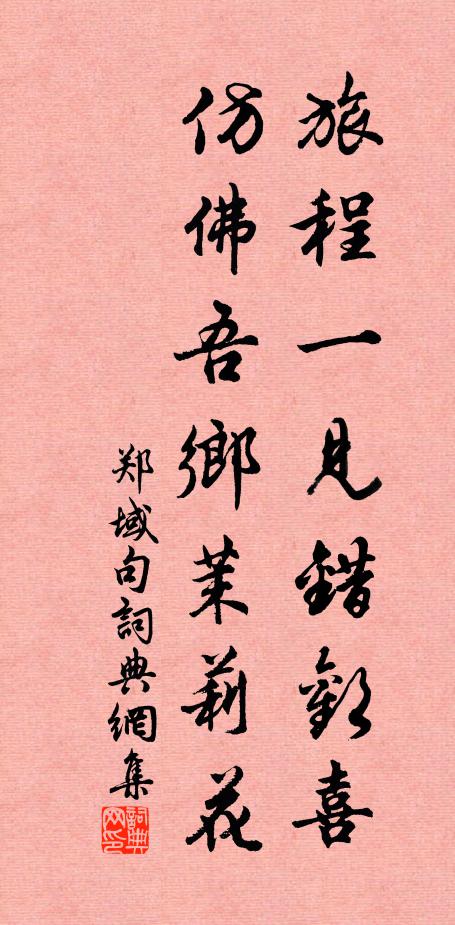 旅程一見錯歡喜
仿佛吾鄉茉莉花
郑域句詞典網集
詞典网印